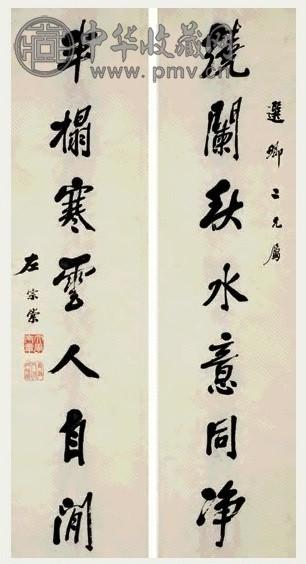 中华收藏网
www.pmv.cn
選卿二兄屬
繞闌秋水意同净
半榻寒雲人自閒
左宗棠